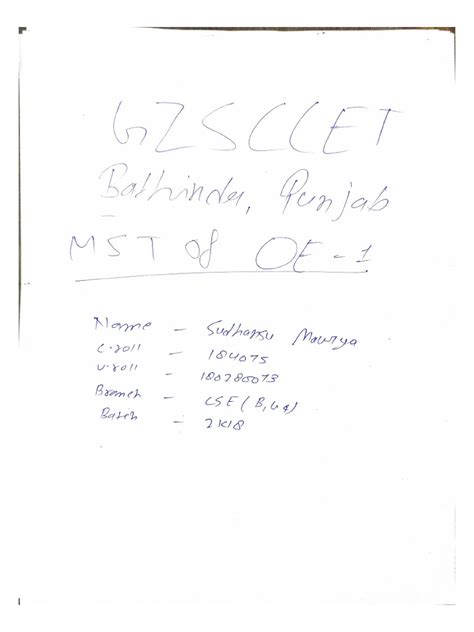 GZSCCET
Bathinda, Punjab
MST of OE-1
Name - Sudhansu Maurya
C.roll - 184075
U.roll - 180280073
Branch - CSE (B,
Batch - 2K18